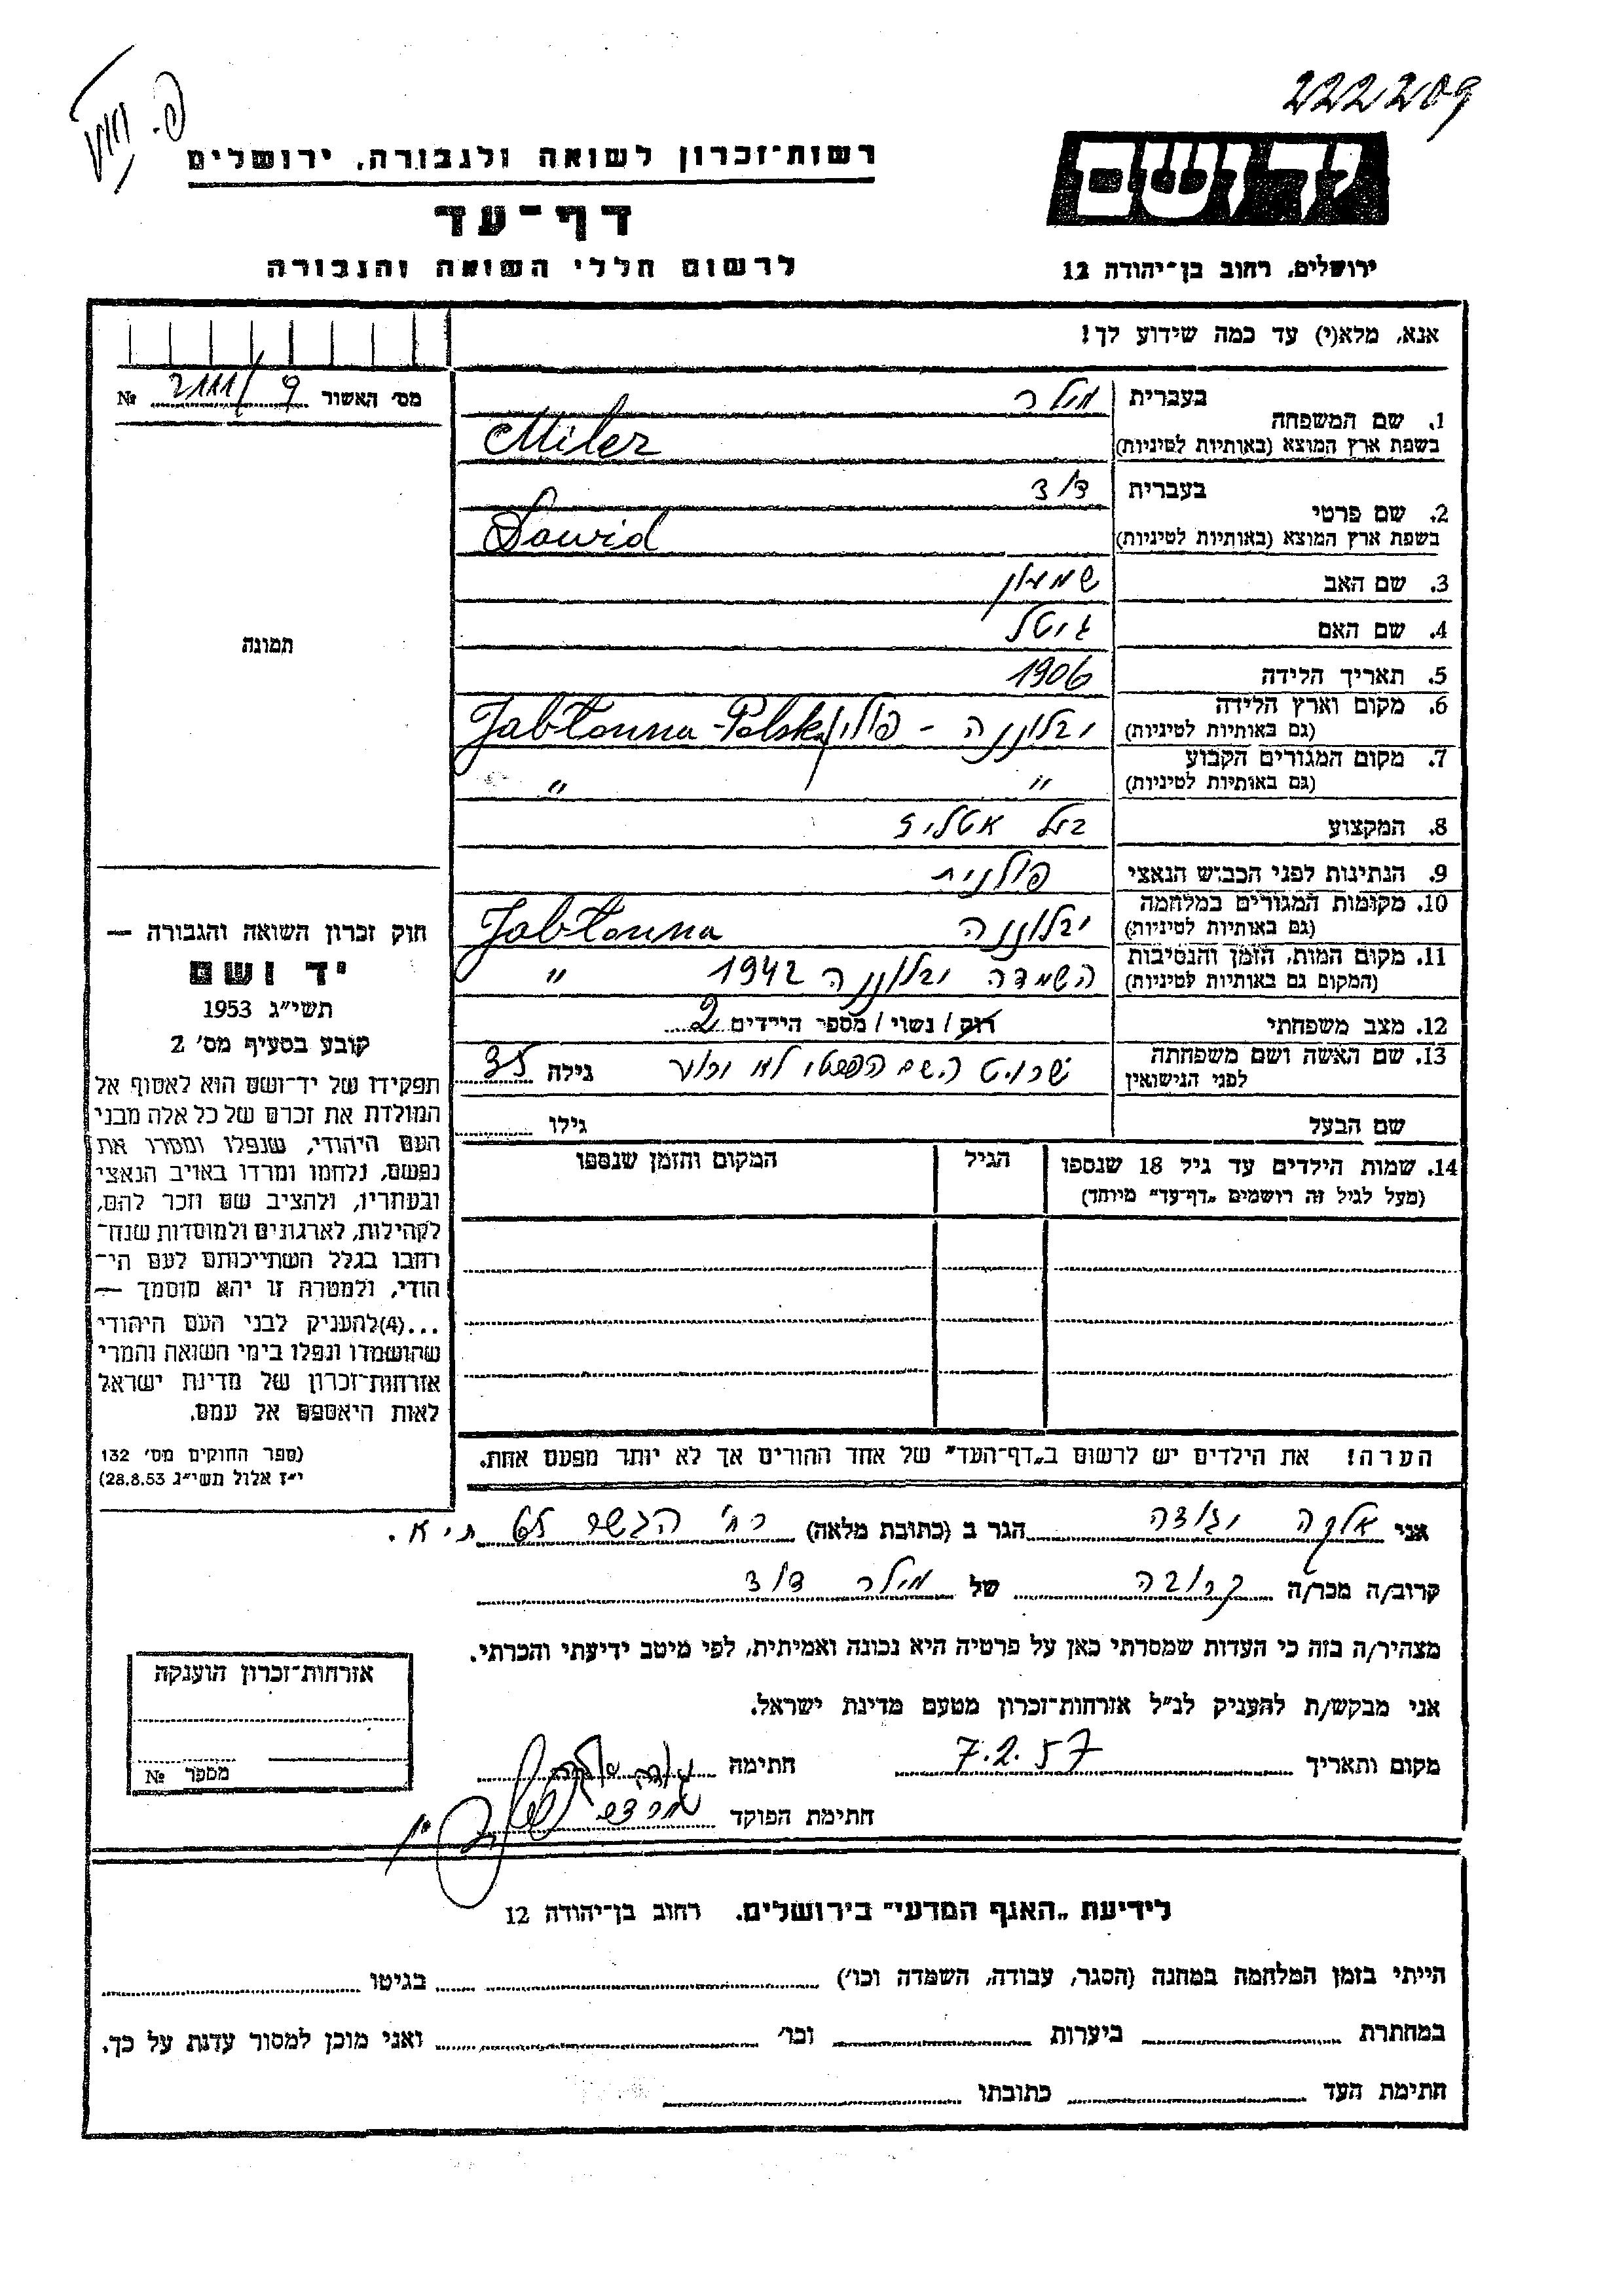 222209
יד ושם
ירושלים, רחוב בן־יהודה 12
רשות־זכרון לשואה ולגבורה, ירושלים
דף־עד
לרשום חללי השואה והגבורה
אנא, מלא(י) עד כמה שידוע לך!
מס׳ האשור 2111/9 №
1. שם המשפחה
בעברית מילר
בשפת ארץ המוצא (באותיות לטיניות) Miler
2. שם פרטי
בעברית דוד
בשפת ארץ המוצא (באותיות לטיניות) Dawid
3. שם האב שמעון
4. שם האם גיטל
5. תאריך הלידה 1906
6. מקום וארץ הלידה
(גם באותיות לטיניות) יבלונה - פולין Jabłonna-Polska
7. מקום המגורים הקבוע
(גם באותיות לטיניות) " "
8. המקצוע בעל אטליז
9. הנתינות לפני הכבוש הנאצי פולנית
10. מקומות המגורים במלחמה
(גם באותיות לטיניות) יבלונה Jabłonna
11. מקום המות, הזמן והנסיבות
(המקום גם באותיות לטיניות) השמדה יבלונה 1942 "
12. מצב משפחתי רוק / נשוי / מספר הילדים 2
13. שם האשה ושם משפחתה
לפני הנישואין השם הפרטי לא ידוע גילה 35
שם הבעל גילו
14. שמות הילדים עד גיל 18 שנספו הגיל המקום והזמן שנספו
(מעל לגיל זה רושמים „דף־עד" מיוחד)
הערה! את הילדים יש לרשום ב„דף־העד" של אחד ההורים אך לא יותר מפעם אחת.
תמונה
חוק זכרון השואה והגבורה —
יד ושם
תשי״ג 1953
קובע בסעיף מס׳ 2
תפקידו של יד־ושם הוא לאסוף אל
המולדת את זכרם של כל אלה מבני
העם היהודי, שנפלו ומסרו את
נפשם, נלחמו ומרדו באויב הנאצי
ובעוזריו, ולהציב שם וזכר להם,
לקהילות, לארגונים ולמוסדות שנח־
רחבו בגלל השתייכותם לעם הי־
הודי, ולמטרה זו יהא מוסמך —
...(4)להעניק לבני העם היהודי
שהושמדו ונפלו בימי השואה והמרי
אזרחות־זכרון של מדינת ישראל
לאות היאספם אל עמם.
(ספר החוקים מס׳ 132
י״ז אלול תשי״ג 28.8.53)
אני אלקה הגר ב (כתובת מלאה) רח׳ הגשר 65 ת״א.
קרוב/ה מכר/ה קרובה של מילר דוד
מצהיר/ה בזה כי העדות שמסרתי כאן על פרטיה היא נכונה ואמיתית, לפי מיטב ידיעתי והכרתי.
אני מבקש/ת להעניק לנ״ל אזרחות־זכרון מטעם מדינת ישראל.
מקום ותאריך 7.2.57 חתימה
חתימת הפוקד
אזרחות־זכרון הוענקה
מספר №
לידיעת „האגף המדעי" בירושלים. רחוב בן־יהודה 12
הייתי בזמן המלחמה במחנה (הסגר, עבודה, השמדה וכו׳) בגיטו
במחתרת ביערות וכו׳ ואני מוכן למסור עדות על כך.
חתימת העד כתובתו